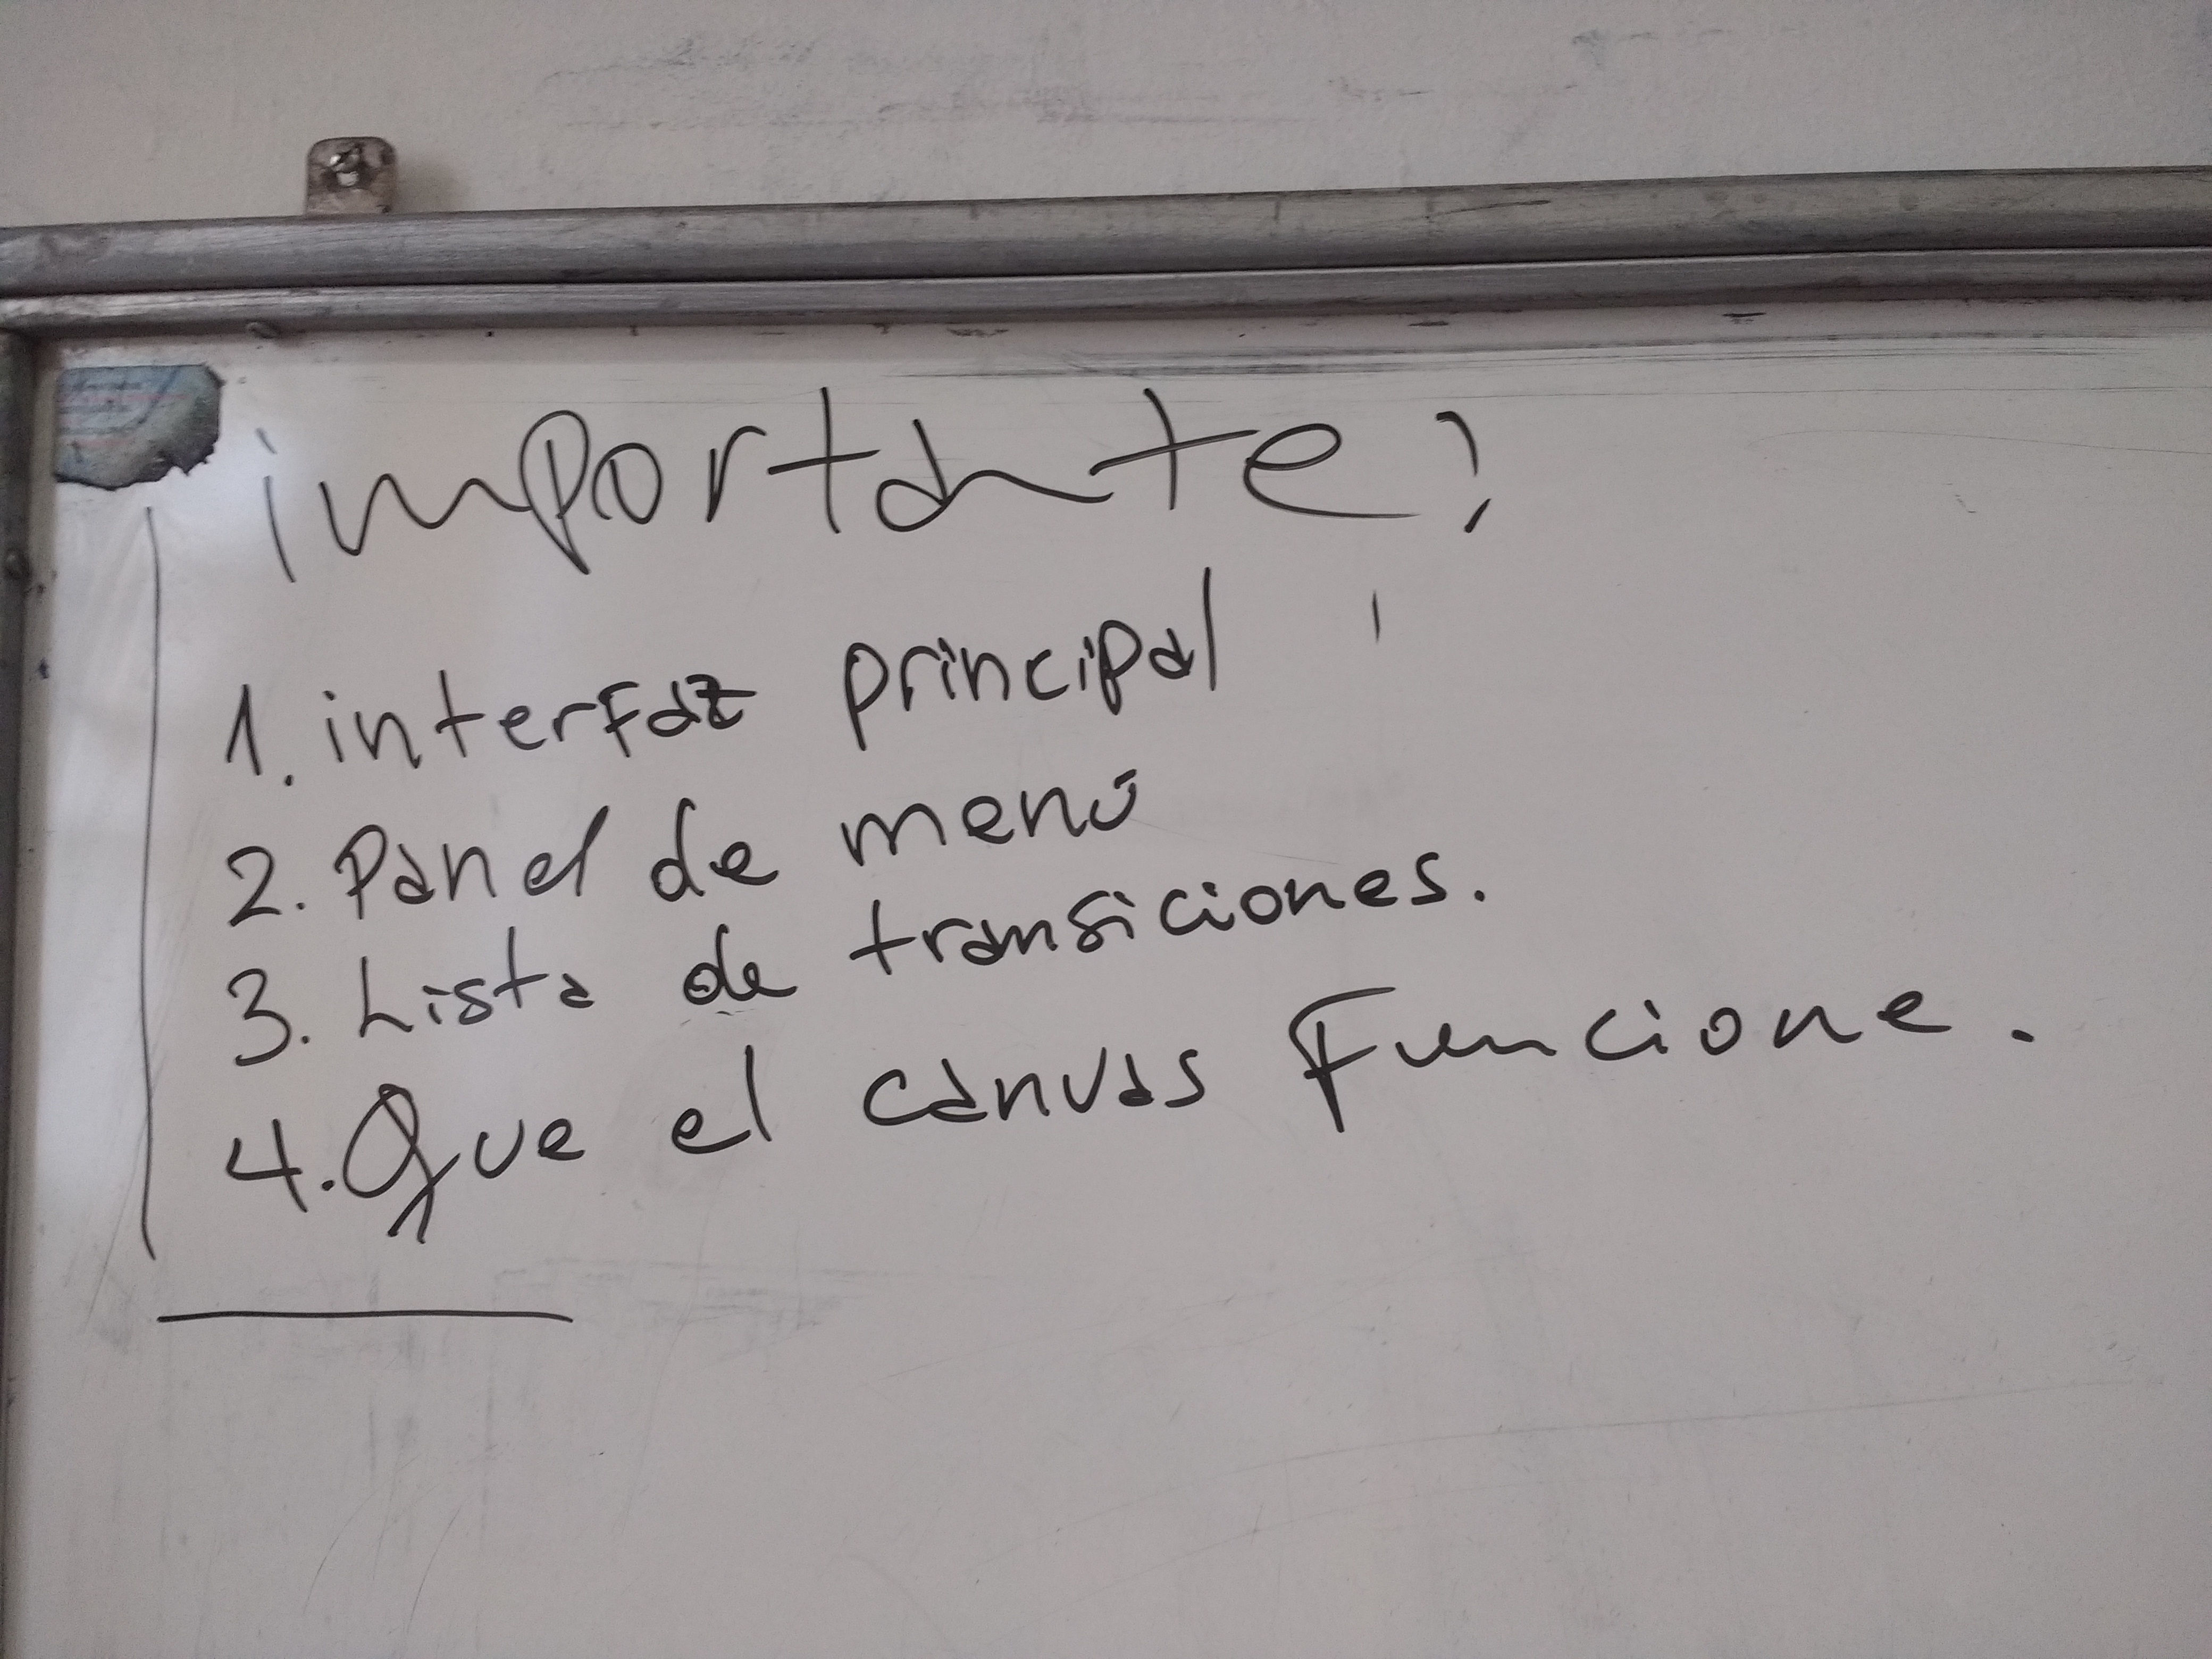 importante:
1. interfaz principal
2. Panel de menú
3. Lista de transiciones.
4. Que el canvas Funcione.